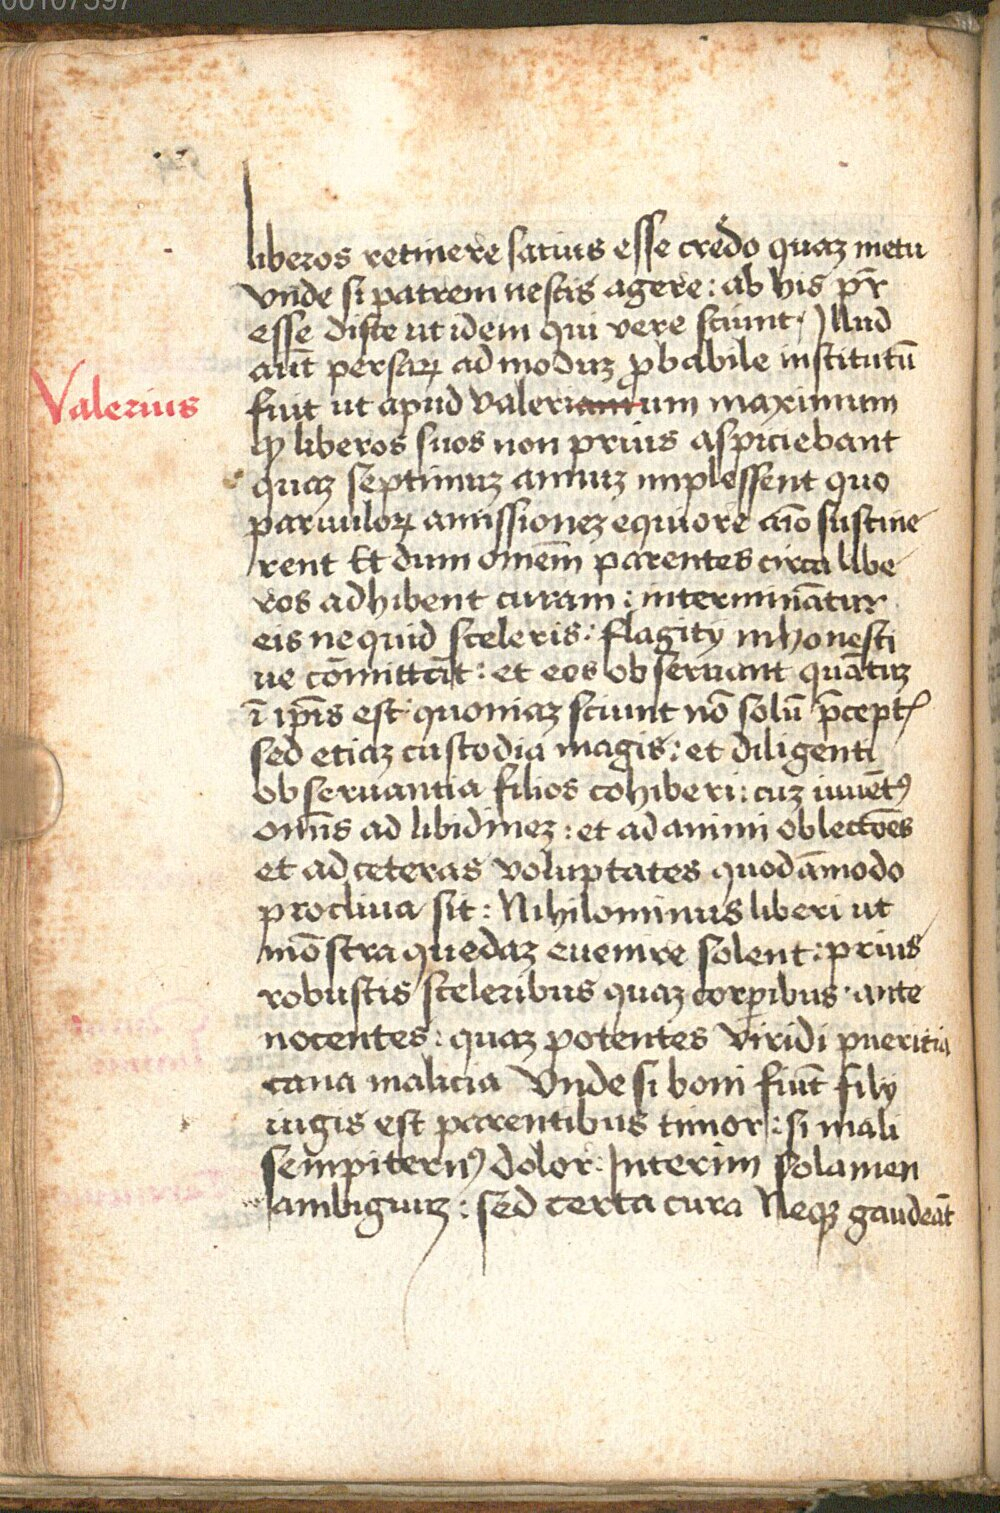 liberos retinere satius esse credo quaꝫ metu
vnde si patrem nescis agere: ab his pr̄
esse disce ut idem qui vere sciunt / Illud
aut̄ persaꝝ ad moduꝫ ꝓbabile institutū
Valerius
fuit ut apud Valerianum um maximum
ꝙ liberos suos non prius aspiciebant
quaꝫ septimuꝫ annuꝫ implessent quo
paruuloꝝ amissioneꝫ equiore aīo sustine
rent Et dum omnem̄ parentes circa libe
ros adhibent curam: interminātur
eis ne quid sceleris: flagitij inhonesti
ue cōmittāt: et eos obseruant quātuꝫ
ī ip̄is est quoniaꝫ sciunt nō solū p̄cept
sed etiaꝫ custodia magis: et diligenti
obseruantia filios cohiberi: cuꝫ iuuētꝰ
omn̄s ad libidineꝫ: et ad animi oblectōēs
et ad ceteras voluptates quodāmodo
procliua sit: Nihilominus liberi ut
mōstra quedaꝫ euenire solent: prius
robustis sceleribus quaꝫ corꝑibus ante
nocentes: quaꝫ potentes viridi pueritia
cana malicia Vnde si boni fiūt filij
iugis est parentibus timor: si mali
sempiternꝰ dolor: Interim solamen
ambiguuꝫ: sed certa cura Neqꝫ gaudeāt